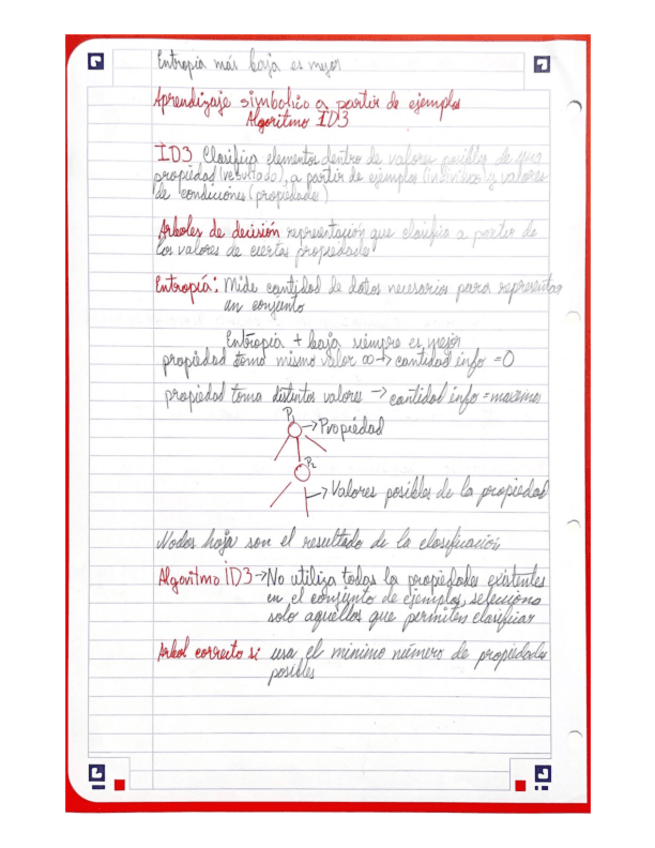 Entropía más baja es mejor
Aprendizaje simbolico a partir de ejemplos
Algoritmo ID3
ID3 Clasifica elementos dentro de valores posibles de una
propiedad (resultado), a partir de ejemplos (individuos y valores
de condiciones (propiedades)
Arboles de decisión representación que clasifica a partir de
los valores de ciertas propiedades
Entropía: Mide cantidad de datos necesarios para representar
un conjunto
Entropía + baja siempre es mejor
propiedad toma mismo valor ∞ → cantidad info = 0
propiedad toma distintos valores → cantidad info = maximo
P1
→ Propiedad
P2
→ Valores posibles de la propiedad
Nodos hoja son el resultado de la clasificación
Algoritmo ID3 → No utiliza todas la propiedades existentes
en el conjunto de ejemplos, selecciona
solo aquellos que permiten clasificar
Arbol correcto si usa el minimo número de propiedades
posibles